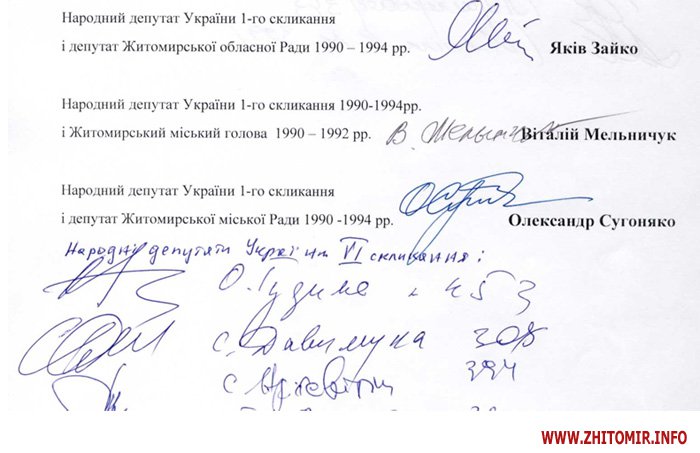 Народний депутат України 1-го скликання
і депутат Житомирської обласної Ради 1990 – 1994 рр. Яків Зайко
Народний депутат України 1-го скликання 1990-1994рр.
і Житомирський міський голова 1990 – 1992 рр. В. Мельничук Віталій Мельничук
Народний депутат України 1-го скликання
і депутат Житомирської міської Ради 1990 -1994 рр. Олександр Сугоняко
Народні депутати України VI скликання:
О. Гудима - 453
С. Давимука 308
С 394
WWW.ZHITOMIR.INFO